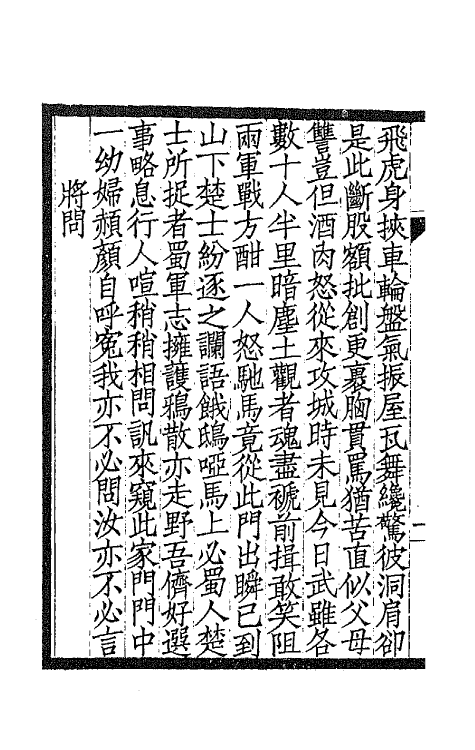 飛虎身挾車輪盤氣振屋瓦舞纔驚彼洞肩卻
是此斷股額批創更裹胸貫罵猶苦直似父母
讐豈但酒肉怒從來攻城時未見今日武雖各
數十人半里暗塵土觀者魂盡褫前揖敢笑阻
兩軍戰方酣一人怒馳馬竟從此門出瞬已到
山下楚士紛逐之讕語餓鴟啞馬上必蜀人楚
士所捉者蜀軍志擁護鴉散亦走野吾儕好選
事略息行人喧稍稍相問訊來窺此家門門中
一幼婦頳顏自呼寃我亦不必問汝亦不必言
將問